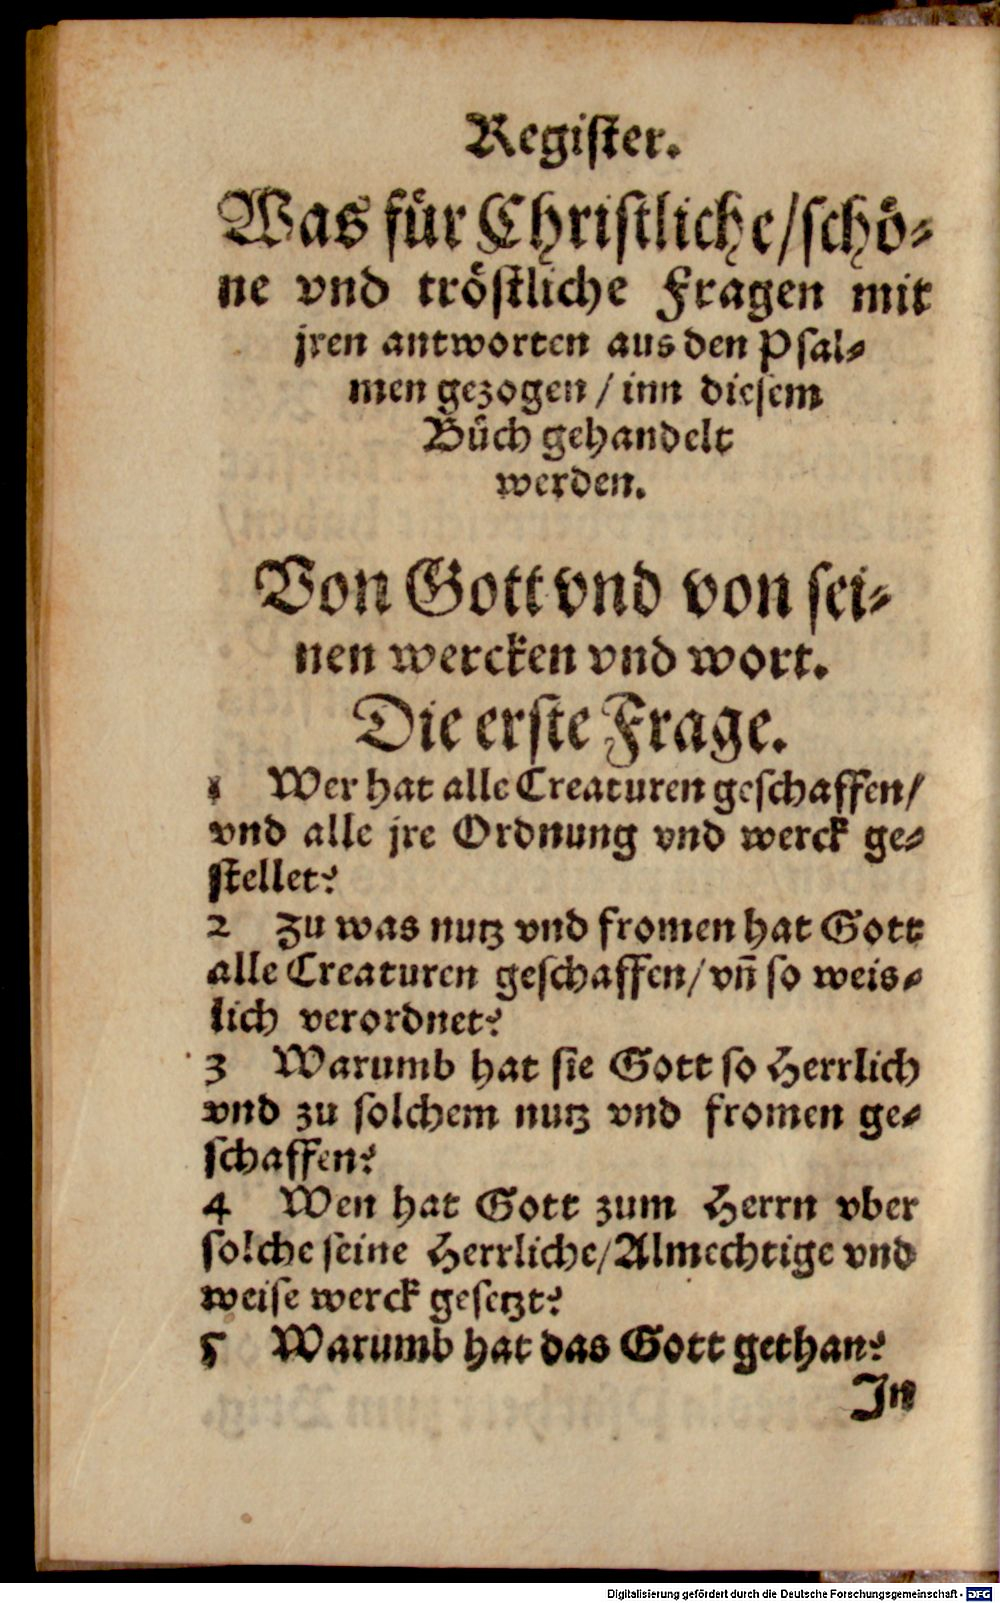 Register.
Was fuͤr Chriſtliche/ſchoͤ⸗
ne vnd troͤſtliche Fragen mit
jren antworten aus den Pſal⸗
men gezogen / inn dieſem
Buͤch gehandelt
werden.
Von Gott vnd von ſei⸗
nen wercken vnd wort.
Die erſte Frage.
1 Wer hat alle Creaturen geſchaffen/
vnd alle jre Ordnung vnd werck ge⸗
ſtellet?
2 Zu was nutz vnd fromen hat Gott
alle Creaturen geſchaffen/ vn̄ ſo weis⸗
lich verordnet?
3 Warumb hat ſie Gott ſo Herrlich
vnd zu ſolchem nutz vnd fromen ge⸗
ſchaffen?
4 Wen hat Gott zum Herrn vber
ſolche ſeine Herrliche/Almechtige vnd
weiſe werck geſetzt?
5 Warumb hat das Gott gethan?
In
Digitalisierung gefördert durch die Deutsche Forschungsgemeinschaft - DFG